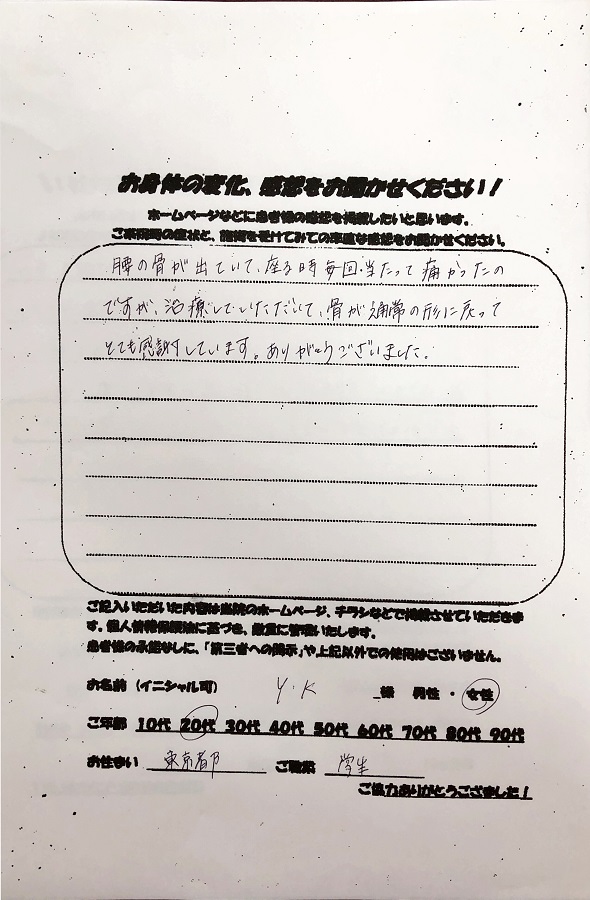 お身体の変化、感想をお聞かせください！
ホームページなどに患者様の感想を掲載したいと思います。
ご来院時の症状と、施術を受けてみての率直な感想をお聞かせください。
腰の骨が出ていて、座る時毎回当たって痛かったの
ですが、治療していただいて、骨が通常の形に戻って
とても感謝しています。ありがとうございました。
ご記入いただいた内容は当院のホームページ、チラシなどで掲載させていただきま
す。個人情報保護法に基づき、厳重に管理いたします。
患者様の承諾なしに、「第三者への掲示」や上記以外での使用はございません。
お名前（イニシャル可） Y.K 様 男性・女性
ご年齢 10代 20代 30代 40代 50代 60代 70代 80代 90代
お住まい 東京都 ご職業 学生
ご協力ありがとうござました！